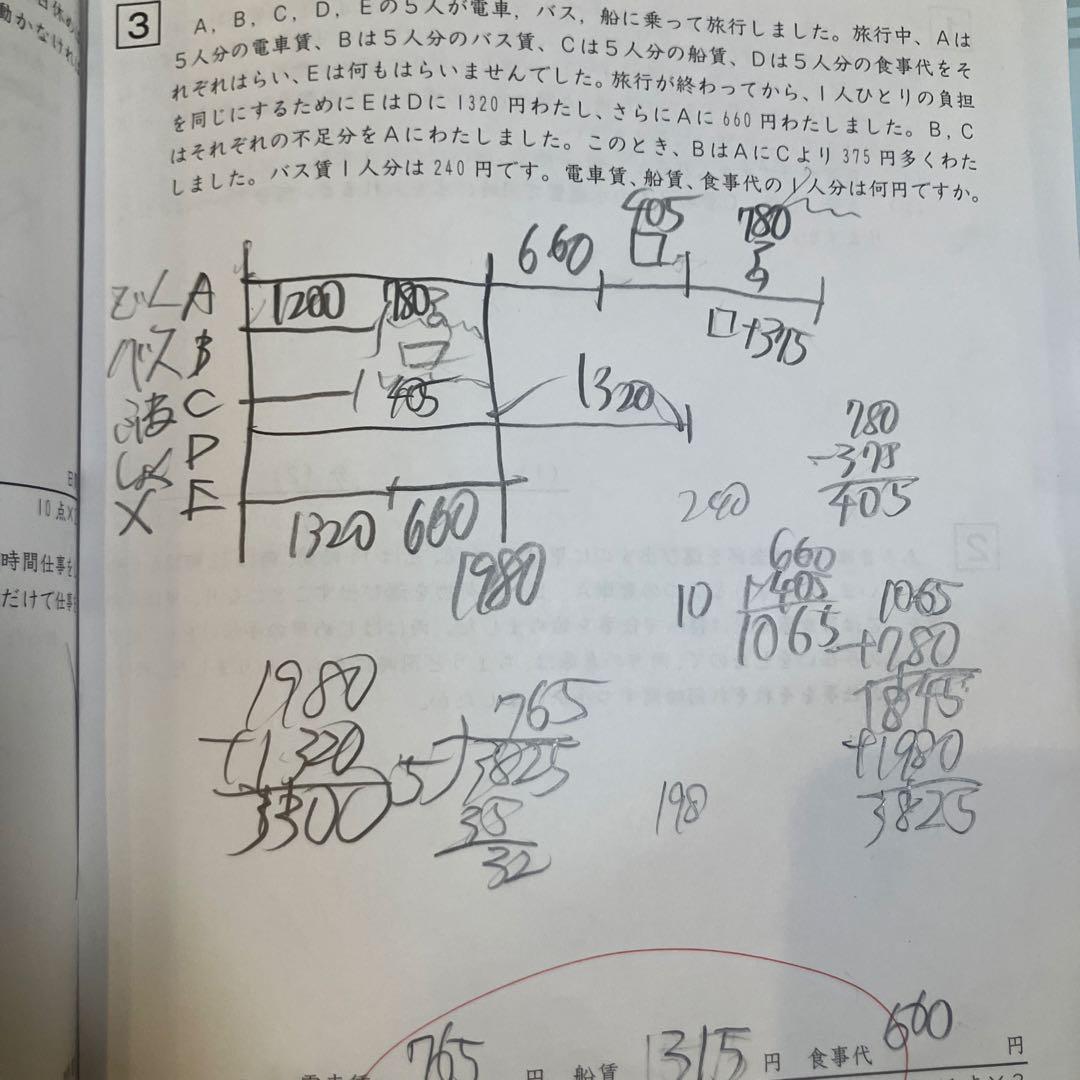 日休め
動かなければ
3
A，B，C，D，Eの5人が電車，バス，船に乗って旅行しました。旅行中、Aは
5人分の電車賃、Bは5人分のバス賃、Cは5人分の船賃、Dは5人分の食事代をそ
れぞれはらい、Eは何もはらいませんでした。旅行が終わってから、1人ひとりの負担
を同じにするためにEはDに1320円わたし、さらにAに660円わたしました。B，C
はそれぞれの不足分をAにわたしました。このとき、BはAにCより375円多くわた
しました。バス賃1人分は240円です。電車賃、船賃、食事代の1人分は何円ですか。
660 405 780
A 1200 780
□+375
バス B
C 405 1320
D
× E
1320 660
1980
780
-375
405
240
10
660
+405
1065
1065
+780
1845
+1980
3825
1980
+1320
3300
765
5 3825
35
32
198
10点×
時間仕事を
だけで仕事
電車賃 765 円 船賃 1315 円 食事代 660 円